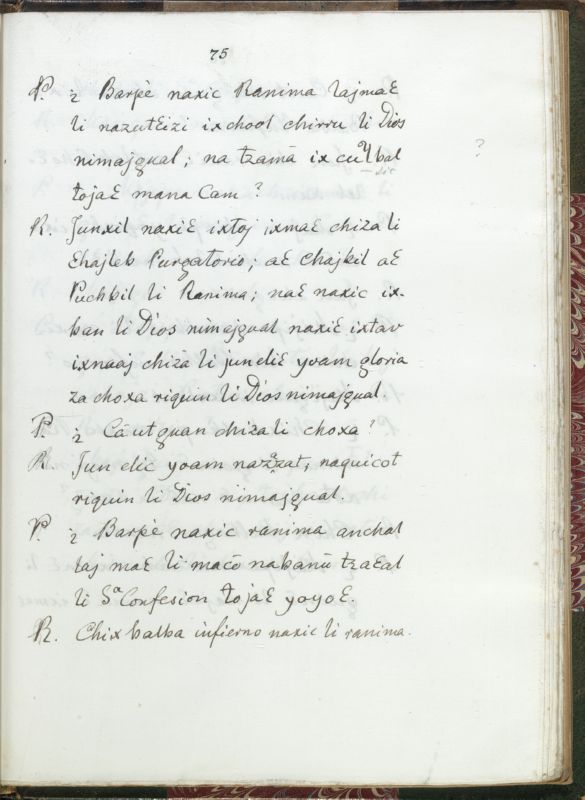 75
P. ¿ Barpè naxic Ranima lajmaɛ
li nazutɛizi ixchool chirru li Dios
nimajgual; na tzamā ix cuybal
tojaɛ mana Cam?
?
R. Junxil naxiɛ ixtoj ixmaɛ chiza li
Chajleb Purgatorio; aɛ chajbil aɛ
Puchbil li Ranima; naɛ naxic ix-
ban li Dios nimajgual naxiɛ ixtav
ixnaaj chiza li junelic yoam gloria
za choxa riquin li Dios nimajgual.
P. ¿ Ca utguan chiza li choxa?
R. Jun elic yoam nazzat, naquicot
riquin li Dios nimajgual.
P. ¿ Barpè naxic ranima anchal
laj maɛ li macō nabanū tzaɛal
li Sᵃ Confesion tojaɛ yoyoɛ.
R. Chixbalba infierno naxic li ranima.